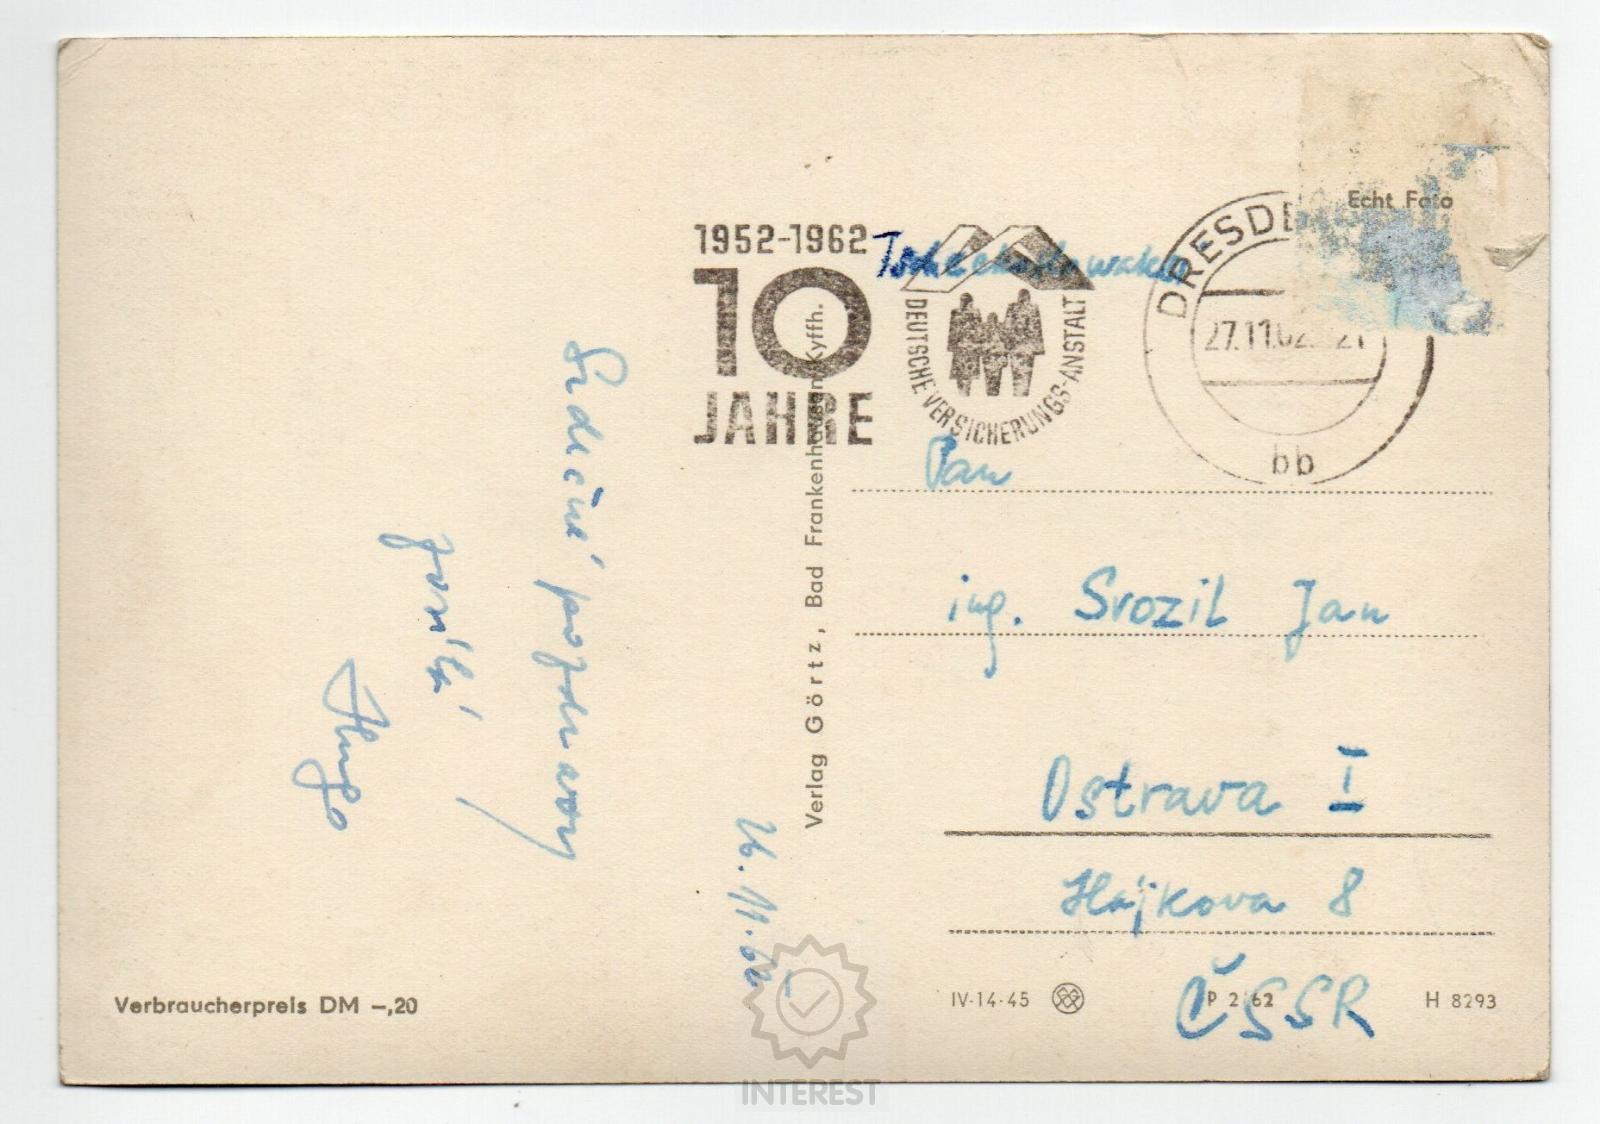 Srdečné pozdravy
zasílá
Hugo
26. 11. 62
Verbraucherpreis DM -,20
Verlag Görtz, Bad Frankenhausen/Kyffh.
1952-1962
10
JAHRE
DEUTSCHE·VERSICHERUNGS-ANSTALT
Tschechoslowakei
DRESDE
27.11.62. 21
bb
Echt Foto
Pan
ing. Srozil Jan
Ostrava I
Hájkova 8
ČSSR
IV-14-45
P 2/62
H 8293
INTEREST